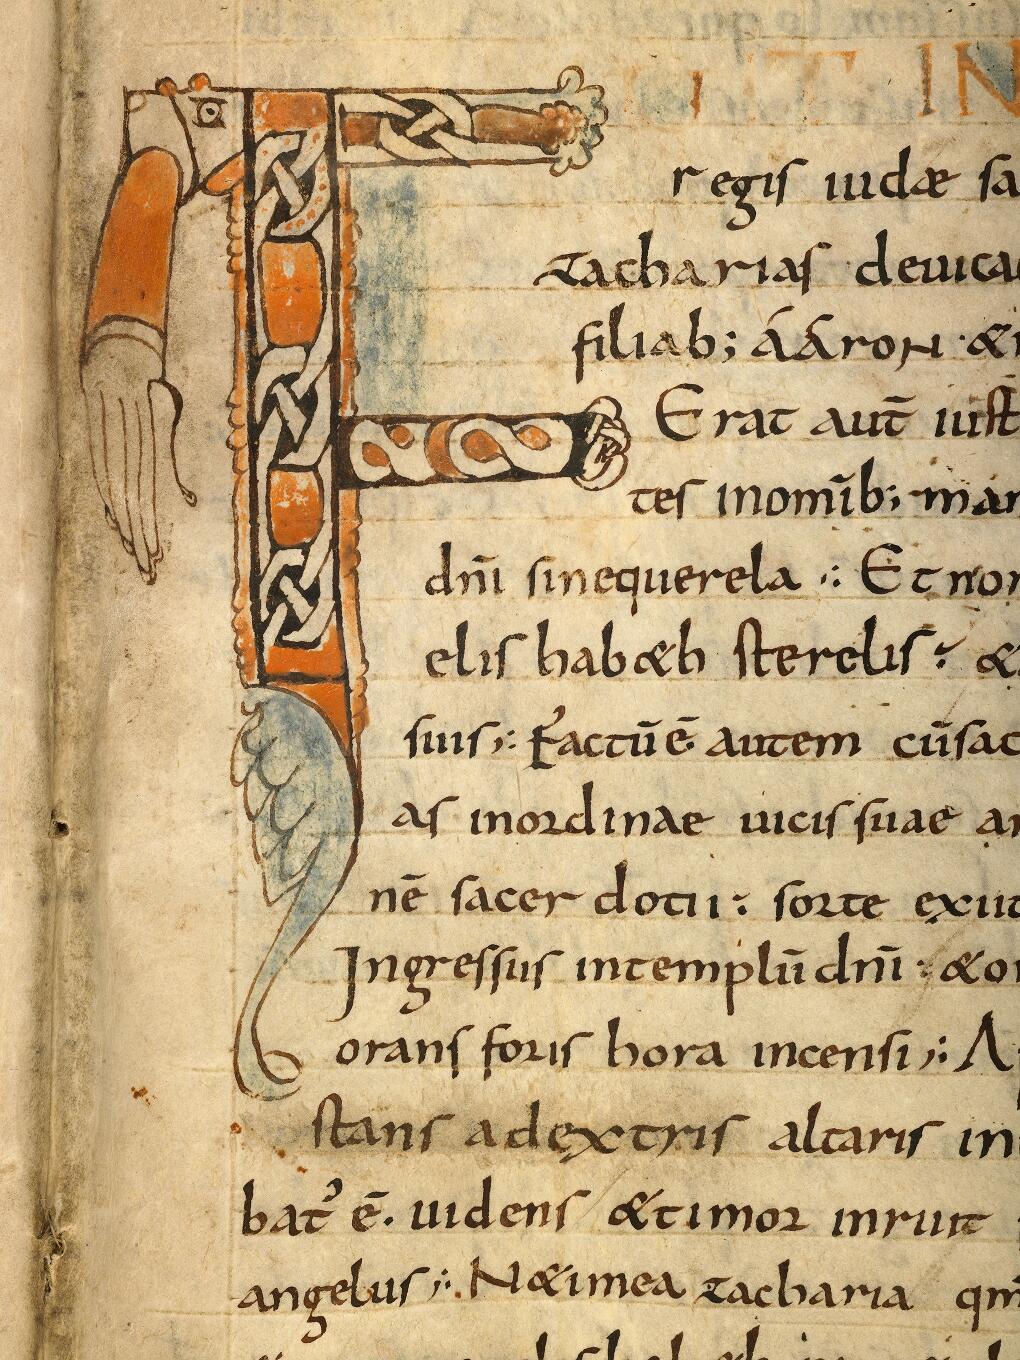 F
IN
regis iudæ sa
zacharias deuica
filiab; áÁroN &
Erat aut̄ iust
tes inom̄ib; man
dn̄i sinequerela ·: Et non
elis hab&h sterelis: &
suis;: Factū ē autem cūsac
as inordinae uicis suae an
nē sacerdotii: sorte exiit
Ingressus intemplū dn̄i: &o
orans foris hora incensi;: A
stans adextris altaris in
bat᾽ ē. uidens &timor inruit
angelus;: N&imea zacharia qm̄